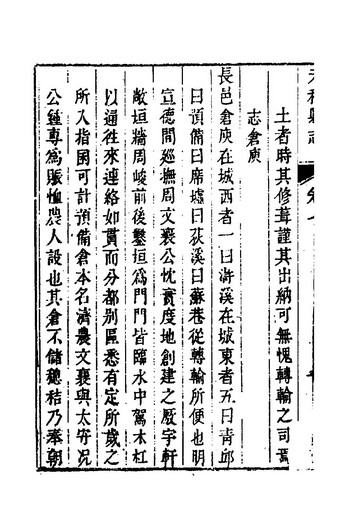 土者時其修葺謹其出納可無愧轉輸之司焉
志倉庾
長邑倉庾在城西者一曰滸溪在城東者五曰青邱
曰預備曰席墟曰荻溪曰蘇巷從轉輸所便也明
宣德間巡撫周文襄公忱實度地創建之厫宇軒
敞垣墻周峻前後鑿垣爲門門皆臨水中駕木杠
以逼徃來連絡如貫而分都別區悉有定所歲之
所入指囷可計預備倉本名濟農文襄與太守况
公鍾專爲賑恤農人設也其倉不儲穂秸乃奉朝